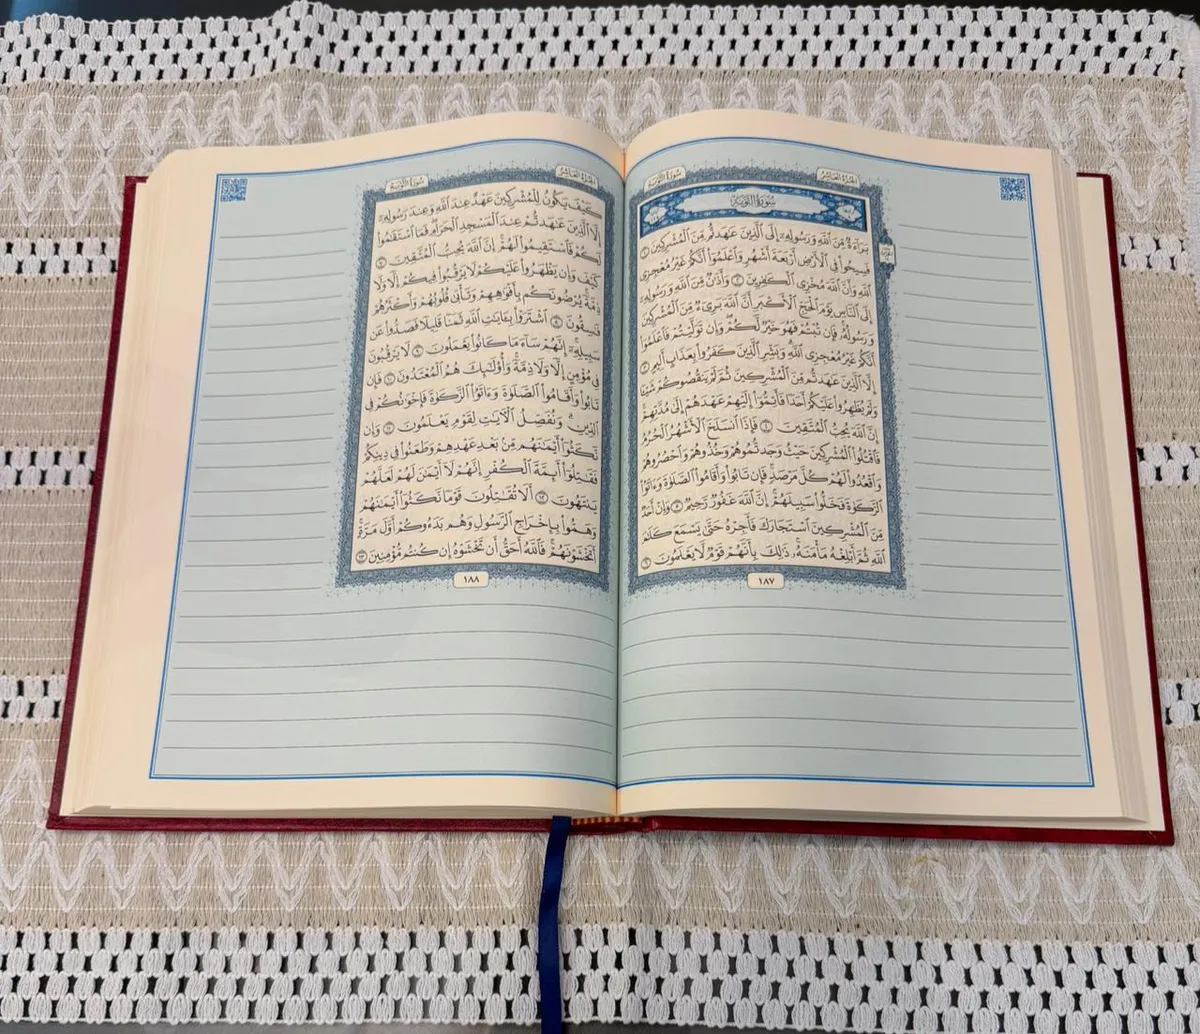 سُورَةُ التَّوْبَةِ
الجُزْءُ العَاشِرُ
سُورَةُ التَّوْبَةِ
بَرَآءَةٌ مِّنَ ٱللَّهِ وَرَسُولِهِۦٓ إِلَى ٱلَّذِينَ عَٰهَدتُّم مِّنَ ٱلْمُشْرِكِينَ ١
فَسِيحُوا۟ فِى ٱلْأَرْضِ أَرْبَعَةَ أَشْهُرٍ وَٱعْلَمُوٓا۟ أَنَّكُمْ غَيْرُ مُعْجِزِى
ٱللَّهِ وَأَنَّ ٱللَّهَ مُخْزِى ٱلْكَٰفِرِينَ ٢ وَأَذَٰنٌ مِّنَ ٱللَّهِ وَرَسُولِهِۦٓ
إِلَى ٱلنَّاسِ يَوْمَ ٱلْحَجِّ ٱلْأَكْبَرِ أَنَّ ٱللَّهَ بَرِىٓءٌ مِّنَ ٱلْمُشْرِكِينَ
وَرَسُولُهُۥ فَإِن تُبْتُمْ فَهُوَ خَيْرٌ لَّكُمْ وَإِن تَوَلَّيْتُمْ فَٱعْلَمُوٓا۟
أَنَّكُمْ غَيْرُ مُعْجِزِى ٱللَّهِ وَبَشِّرِ ٱلَّذِينَ كَفَرُوا۟ بِعَذَابٍ أَلِيمٍ ٣
إِلَّا ٱلَّذِينَ عَٰهَدتُّم مِّنَ ٱلْمُشْرِكِينَ ثُمَّ لَمْ يَنقُصُوكُمْ شَيْـًٔا
وَلَمْ يُظَٰهِرُوا۟ عَلَيْكُمْ أَحَدًا فَأَتِمُّوٓا۟ إِلَيْهِمْ عَهْدَهُمْ إِلَىٰ مُدَّتِهِمْ
إِنَّ ٱللَّهَ يُحِبُّ ٱلْمُتَّقِينَ ٤ فَإِذَا ٱنسَلَخَ ٱلْأَشْهُرُ ٱلْحُرُمُ
فَٱقْتُلُوا۟ ٱلْمُشْرِكِينَ حَيْثُ وَجَدتُّمُوهُمْ وَخُذُوهُمْ وَٱحْصُرُوهُمْ
وَٱقْعُدُوا۟ لَهُمْ كُلَّ مَرْصَدٍ فَإِن تَابُوا۟ وَأَقَامُوا۟ ٱلصَّلَوٰةَ وَءَاتَوُا۟
ٱلزَّكَوٰةَ فَخَلُّوا۟ سَبِيلَهُمْ إِنَّ ٱللَّهَ غَفُورٌ رَّحِيمٌ ٥ وَإِنْ أَحَدٌ
مِّنَ ٱلْمُشْرِكِينَ ٱسْتَجَارَكَ فَأَجِرْهُ حَتَّىٰ يَسْمَعَ كَلَٰمَ
ٱللَّهِ ثُمَّ أَبْلِغْهُ مَأْمَنَهُۥ ذَٰلِكَ بِأَنَّهُمْ قَوْمٌ لَّا يَعْلَمُونَ ٦
١٨٧
الجُزْءُ العَاشِرُ
سُورَةُ التَّوْبَةِ
كَيْفَ يَكُونُ لِلْمُشْرِكِينَ عَهْدٌ عِندَ ٱللَّهِ وَعِندَ رَسُولِهِۦٓ
إِلَّا ٱلَّذِينَ عَٰهَدتُّمْ عِندَ ٱلْمَسْجِدِ ٱلْحَرَامِ فَمَا ٱسْتَقَٰمُوا۟
لَكُمْ فَٱسْتَقِيمُوا۟ لَهُمْ إِنَّ ٱللَّهَ يُحِبُّ ٱلْمُتَّقِينَ ٧
كَيْفَ وَإِن يَظْهَرُوا۟ عَلَيْكُمْ لَا يَرْقُبُوا۟ فِيكُمْ إِلًّا وَلَا
ذِمَّةً يُرْضُونَكُم بِأَفْوَٰهِهِمْ وَتَأْبَىٰ قُلُوبُهُمْ وَأَكْثَرُهُمْ
فَٰسِقُونَ ٨ ٱشْتَرَوْا۟ بِـَٔايَٰتِ ٱللَّهِ ثَمَنًا قَلِيلًا فَصَدُّوا۟ عَن
سَبِيلِهِۦٓ إِنَّهُمْ سَآءَ مَا كَانُوا۟ يَعْمَلُونَ ٩ لَا يَرْقُبُونَ
فِى مُؤْمِنٍ إِلًّا وَلَا ذِمَّةً وَأُو۟لَٰٓئِكَ هُمُ ٱلْمُعْتَدُونَ ١٠ فَإِن
تَابُوا۟ وَأَقَامُوا۟ ٱلصَّلَوٰةَ وَءَاتَوُا۟ ٱلزَّكَوٰةَ فَإِخْوَٰنُكُمْ فِى
ٱلدِّينِ وَنُفَصِّلُ ٱلْـَٔايَٰتِ لِقَوْمٍ يَعْلَمُونَ ١١ وَإِن
نَّكَثُوٓا۟ أَيْمَٰنَهُم مِّنۢ بَعْدِ عَهْدِهِمْ وَطَعَنُوا۟ فِى دِينِكُمْ
فَقَٰتِلُوٓا۟ أَئِمَّةَ ٱلْكُفْرِ إِنَّهُمْ لَآ أَيْمَٰنَ لَهُمْ لَعَلَّهُمْ
يَنتَهُونَ ١٢ أَلَا تُقَٰتِلُونَ قَوْمًا نَّكَثُوٓا۟ أَيْمَٰنَهُمْ
وَهَمُّوا۟ بِإِخْرَاجِ ٱلرَّسُولِ وَهُم بَدَءُوكُمْ أَوَّلَ مَرَّةٍ
أَتَخْشَوْنَهُمْ فَٱللَّهُ أَحَقُّ أَن تَخْشَوْهُ إِن كُنتُم مُّؤْمِنِينَ ١٣
١٨٨